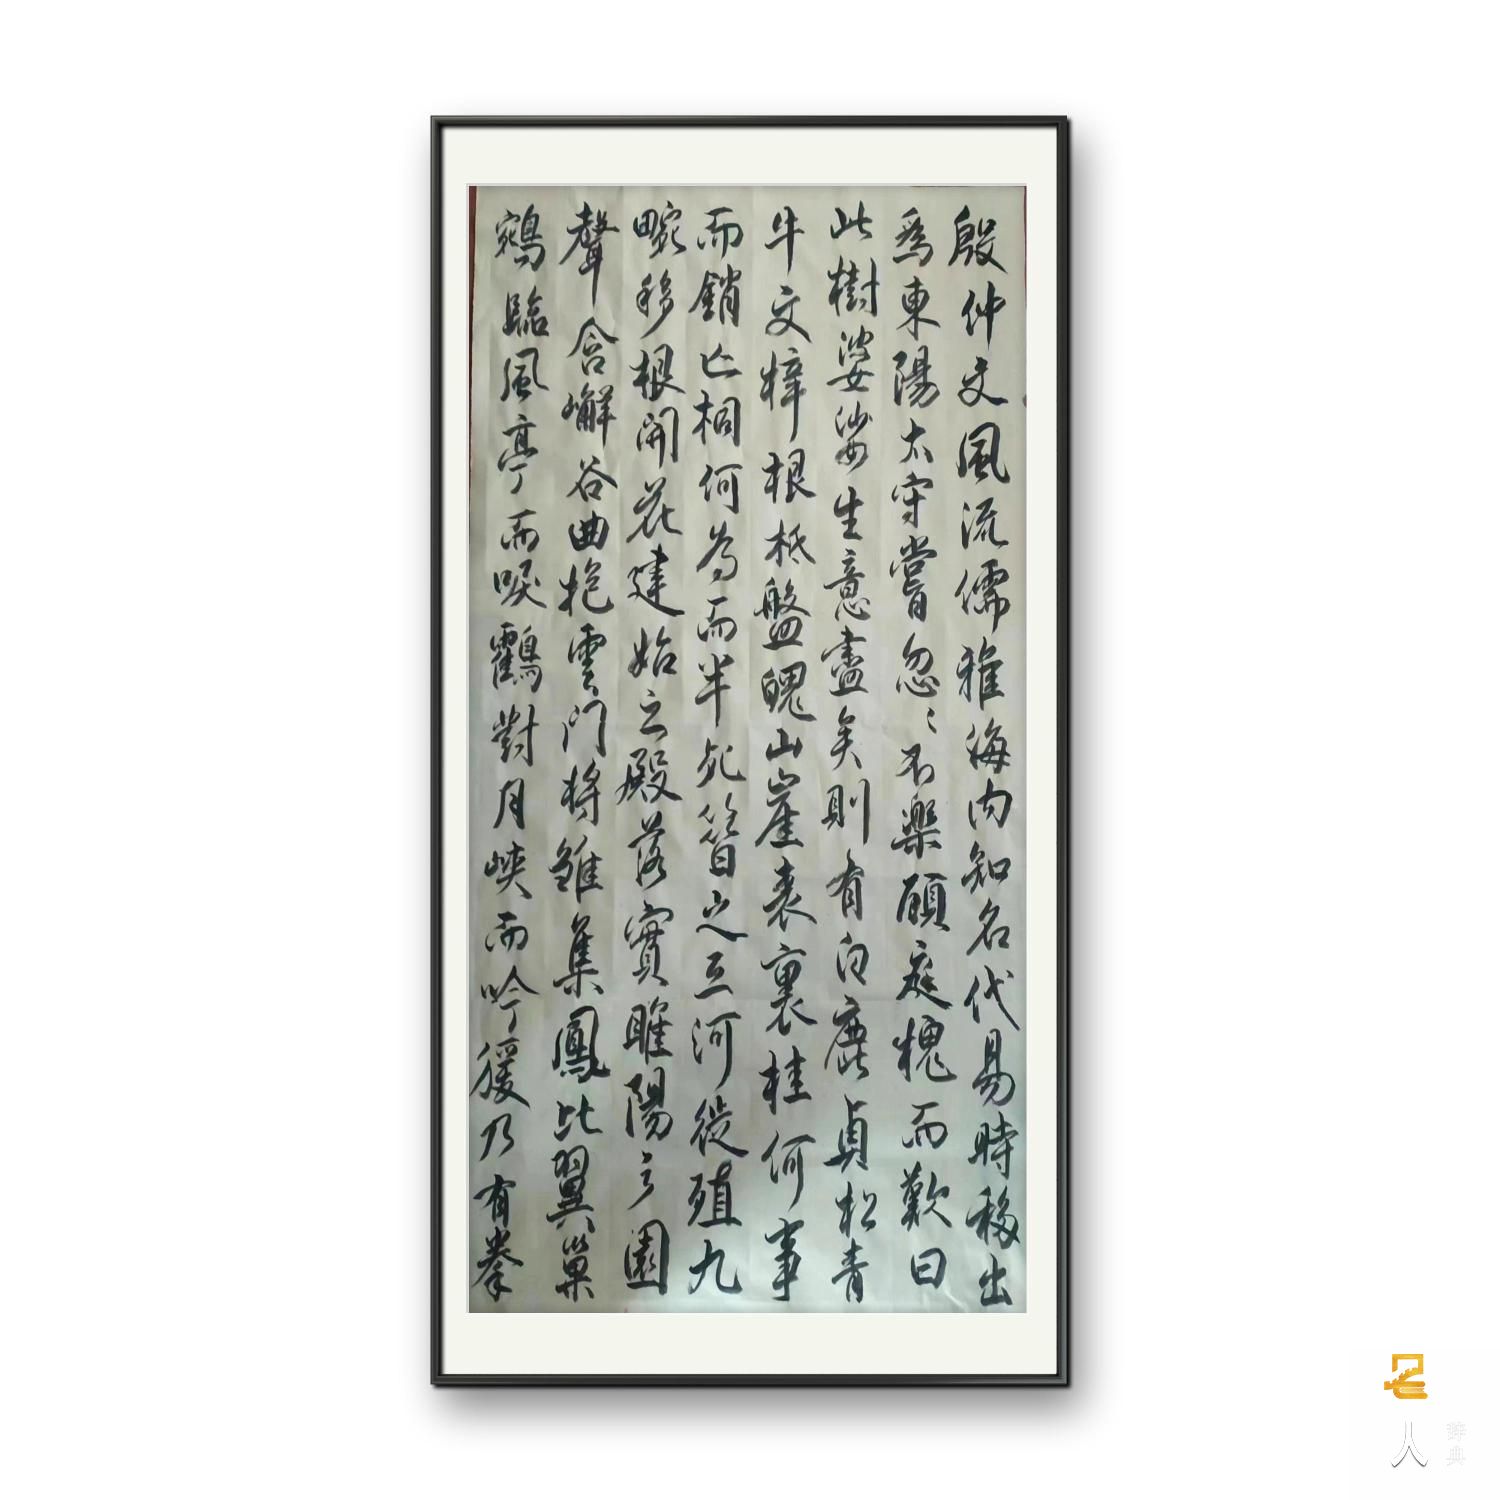 殷仲文風流儒雅海内知名代易時移出
爲東陽太守嘗忽〻不樂顧庭槐而歎曰
此樹婆娑生意盡矣則有白鹿貞松青
牛文梓根柢盤魄山崖表裏桂何事
而銷亡桐何為而半死昔之三河徙殖九
畹移根開花建始之殿落實睢陽之園
聲含嶰谷曲抱雲門將雛集鳳比翼巢
鵷臨風亭而唳鶴對月峽而吟猨乃有拳
名
人
辞典